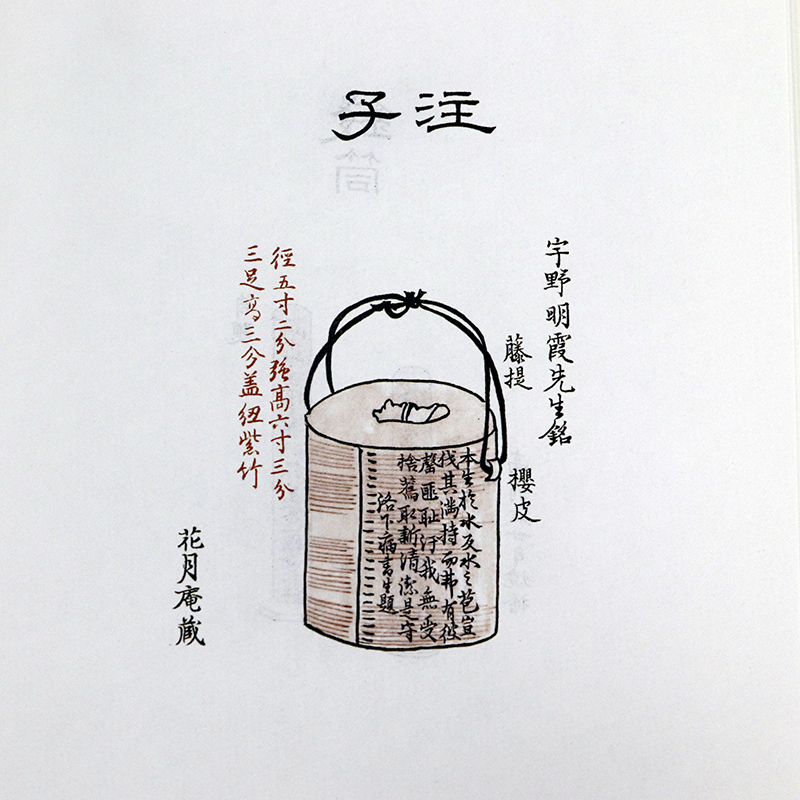 注子
宇野明霞先生銘
藤提
櫻皮
本生於水反水之苞豈
找其満持而弗有彼
罄匪耻汙我無受
捨蔫取新清潔是守
洛下病書生題
徑五寸二分強高六寸三分
三足高三分盖紐紫竹
花月庵蔵